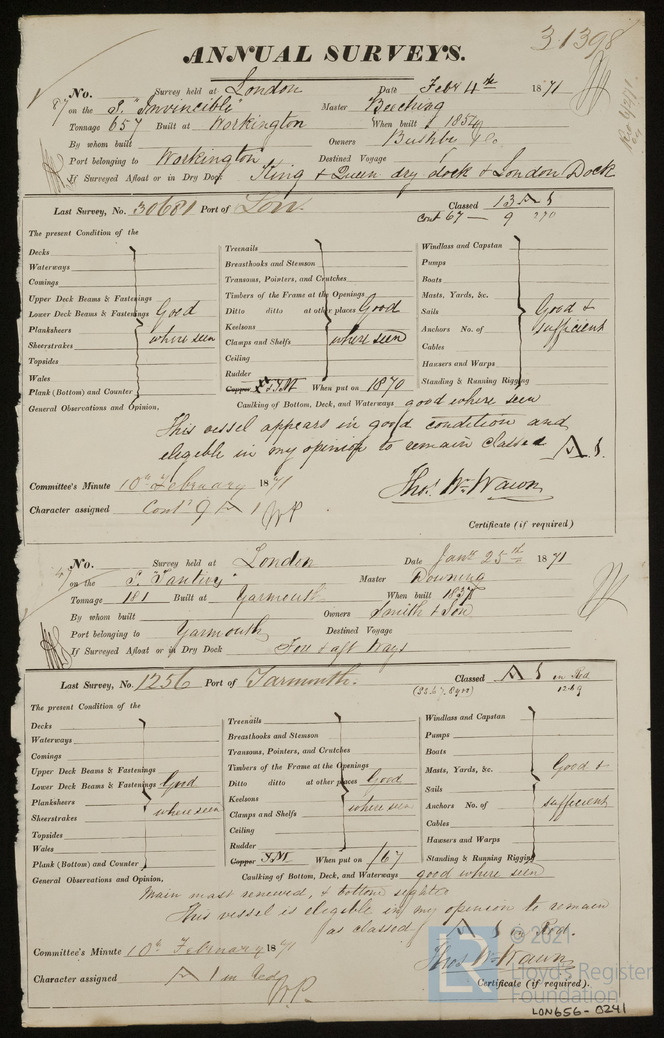 31398
ANNUAL SURVEYS.
No. 87 Survey held at London Date Feby 4th 1871
on the S. "Invincible" Master Beeching
Tonnage 657 Built at Workington When built 1854
By whom built Owners Bushby & Co.
Port belonging to Workington Destined Voyage
If Surveyed Afloat or in Dry Dock King & Queen dry dock & London Dock
Last Survey, No. 30681 Port of Lon. Classed 13 A 1
Cont 67 — 9
The present Condition of the
Decks Treenails Windlass and Capstan
Waterways Breasthooks and Stemson Pumps
Comings Transoms, Pointers, and Crutches Boats
Upper Deck Beams & Fastenings Timbers of the Frame at the Openings Masts, Yards, &c.
Lower Deck Beams & Fastenings Good Ditto ditto at other places Good Sails Good &
Planksheers where seen Keelsons Anchors No. of sufficient
Sheerstrakes Clamps and Shelfs where seen Cables
Topsides Ceiling Hawsers and Warps
Wales Rudder Standing & Running Rigging
Plank (Bottom) and Counter Copper Y.M. When put on 1870
General Observations and Opinion, Caulking of Bottom, Deck, and Waterways good where seen
This vessel appears in good condition and
eligible in my opinion to remain classed A 1.
Committee's Minute 10th February 1871
Character assigned Contd 9 A 1
Thos. Wm. Wawn
Certificate (if required)
No. 47 Survey held at London Date Jany 25th 1871
on the S. Tantivy Master Downing
Tonnage 181 Built at Yarmouth When built
By whom built Owners Smith & Son
Port belonging to Yarmouth Destined Voyage
If Surveyed Afloat or in Dry Dock Fore & aft Ways
Last Survey, No. 1256 Port of Yarmouth. Classed A 1 in Red
The present Condition of the
Decks Treenails Windlass and Capstan
Waterways Breasthooks and Stemson Pumps
Comings Transoms, Pointers, and Crutches Boats
Upper Deck Beams & Fastenings Timbers of the Frame at the Openings Masts, Yards, &c. Good &
Lower Deck Beams & Fastenings Good Ditto ditto at other places Good Sails
Planksheers where seen Keelsons where seen Anchors No. of sufficient
Sheerstrakes Clamps and Shelfs Cables
Topsides Ceiling Hawsers and Warps
Wales Rudder Standing & Running Rigging
Plank (Bottom) and Counter Copper Y.M. When put on /67
General Observations and Opinion, Caulking of Bottom, Deck, and Waterways good where seen
Main mast renewed, & bottom sighted
This vessel is eligible in my opinion to remain
as classed A 1 in Red.
Committee's Minute 10th February 1871
Thos. Wm. Wawn
Character assigned A 1 in Red
Certificate (if required).
© 2021
Lloyd's Register
Foundation
LON656-0241